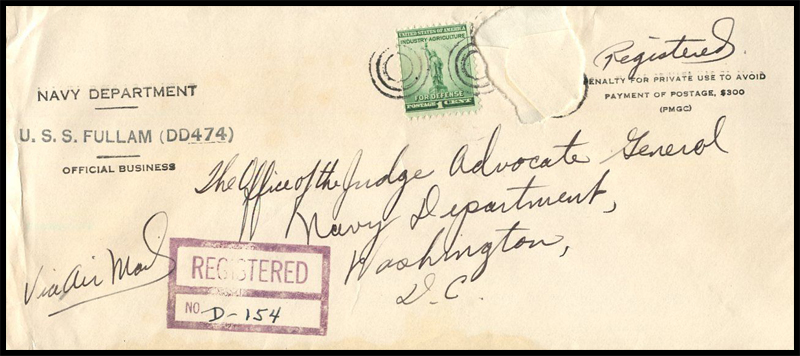 NAVY DEPARTMENT
U. S. S. FULLAM (DD474)
OFFICIAL BUSINESS
UNITED STATES OF AMERICA
INDUSTRY AGRICULTURE
FOR DEFENSE
POSTAGE 1 CENT
Registered
ENALTY FOR PRIVATE USE TO AVOID
PAYMENT OF POSTAGE, $300
(PMGC)
The Office of the Judge Advocate General
Navy Department,
Washington,
D.C.
Via Air Mail
REGISTERED
NO. D-154